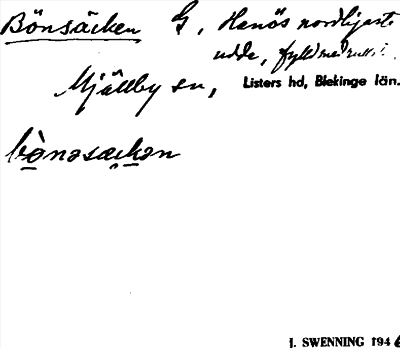 Bönsäcken G, Hanös nordligaste
udde, fylld med
Mjällby sn, Listers hd, Blekinge län.
bònəsæckən
J. SWENNING 1946